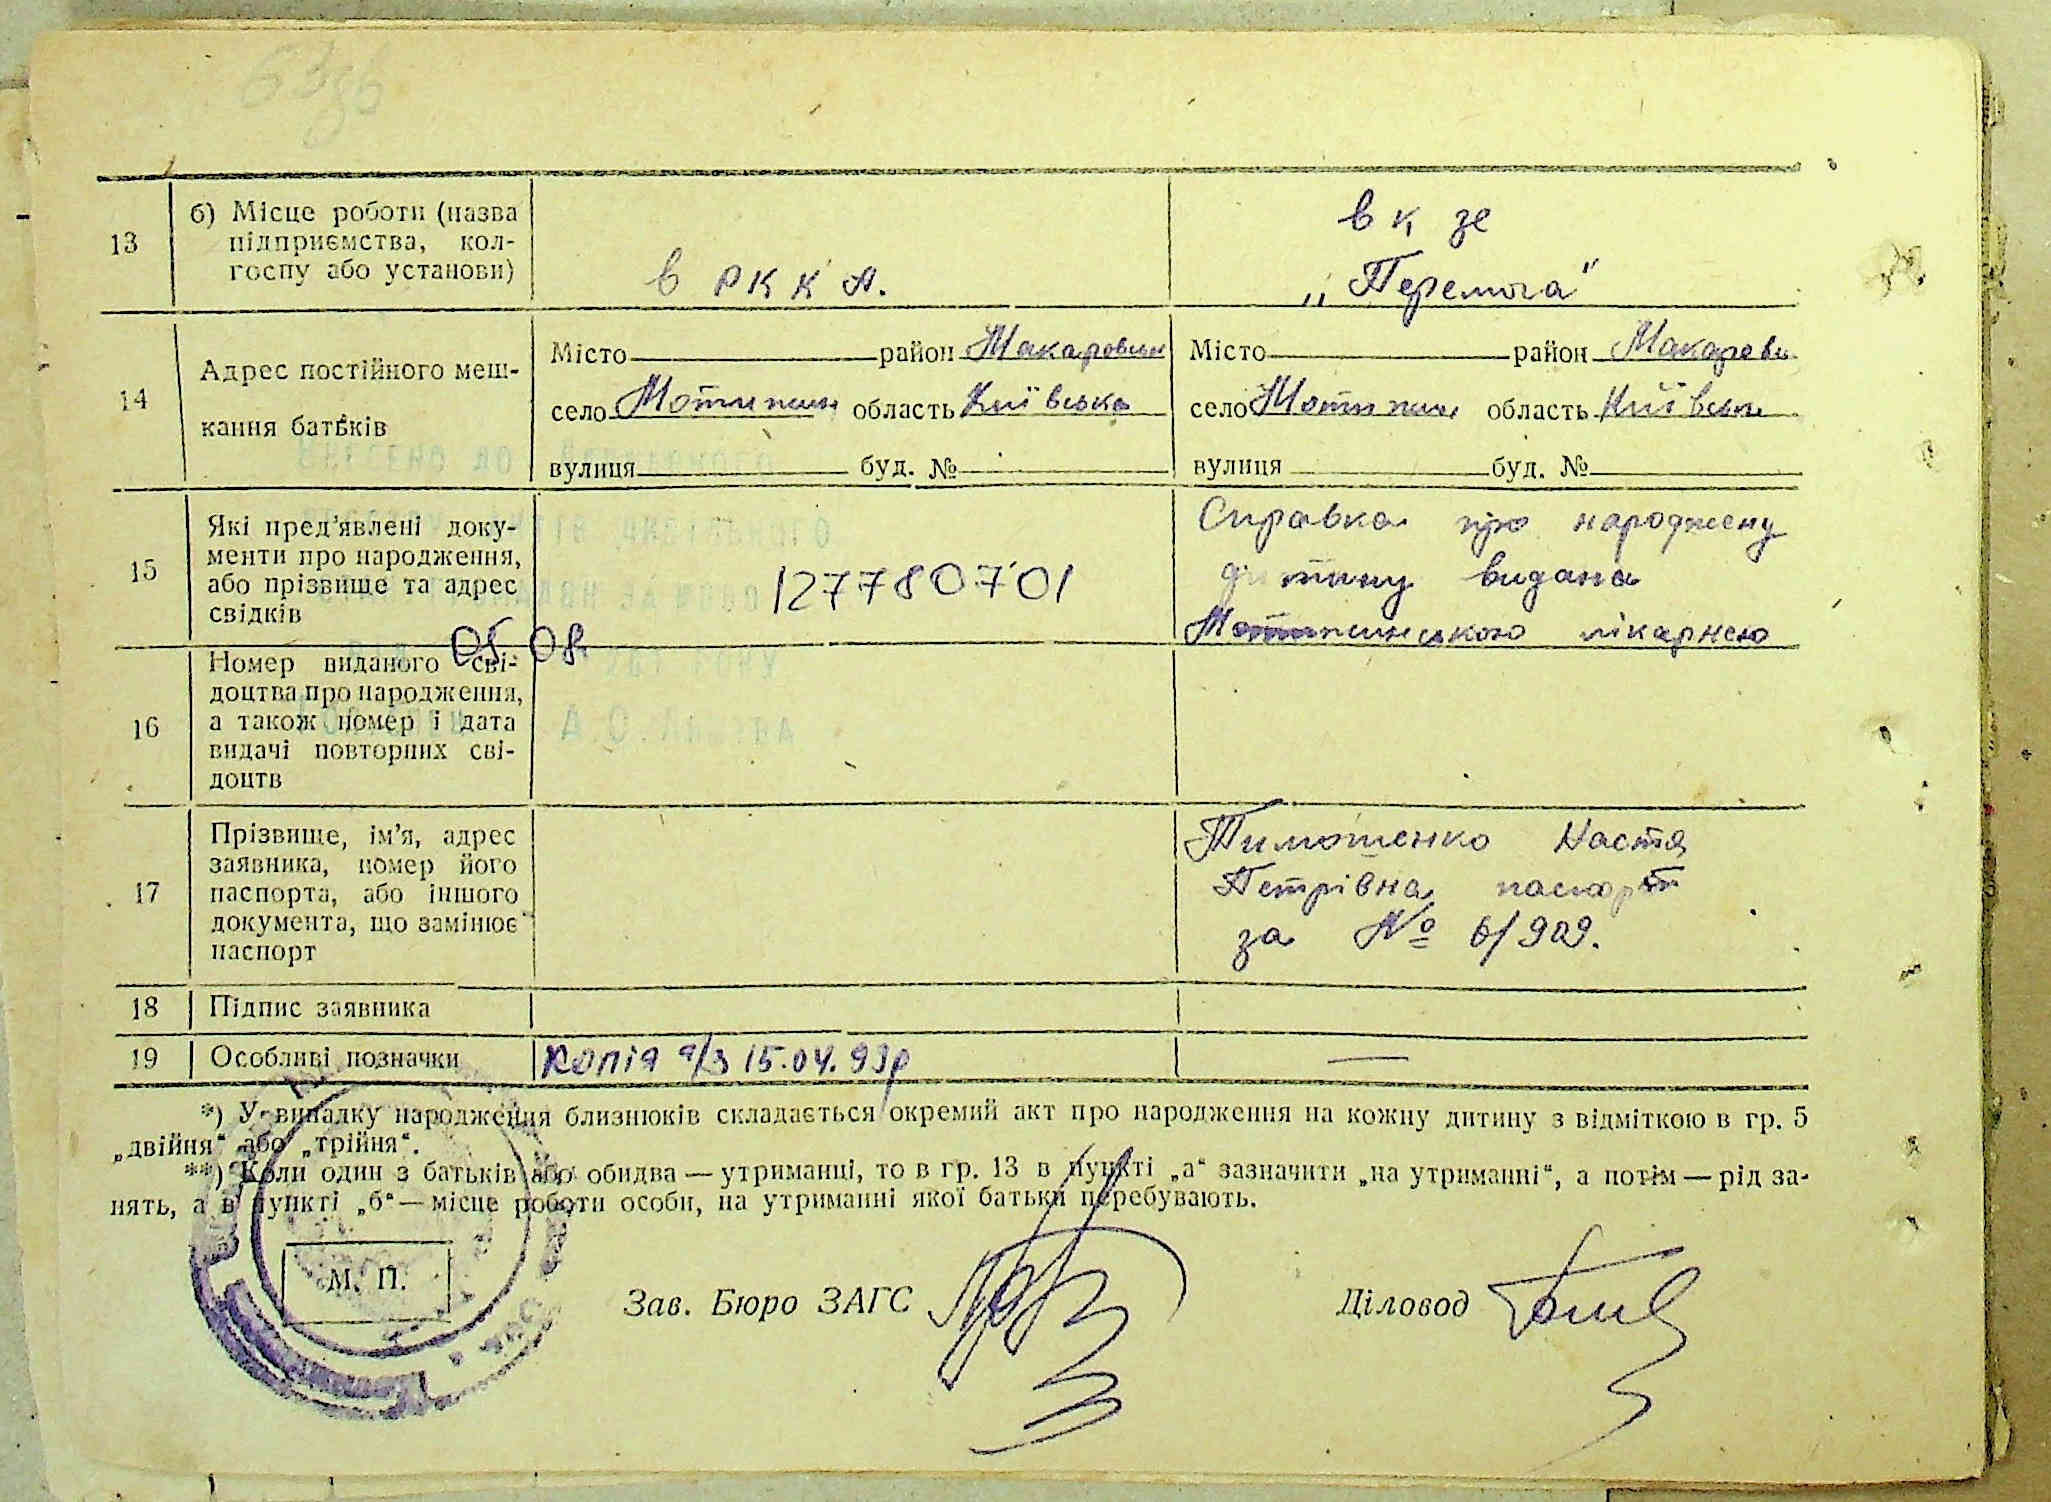 63 зв
13
б) Місце роботи (назва
підприємства, кол-
госпу або установи)
в РККА.
в к зе
„Перемога"
14
Адрес постійного меш-
кання батьків
Місто район Макаровськ
село Мотижин область Київська
вулиця буд. №
Місто район Макаровськ
село Мотижин область Київськ
вулиця буд. №
15
Які пред'явлені доку-
менти про народження,
або прізвище та адрес
свідків
127780701
05.08.
Справка про народжену
дитину видана
Мотижинською лікарнею
16
Номер виданого сві-
доцтва про народження,
а також номер і дата
видачі повторних сві-
доцтв
17
Прізвище, ім'я, адрес
заявника, номер його
паспорта, або іншого
документа, що замінює
паспорт
Тимошенко Настя
Петрівна паспорт
за № 6/909.
18
Підпис заявника
19
Особливі позначки
копія а/з 15.04.99р
—
*) У випадку народження близнюків складається окремий акт про народження на кожну дитину з відміткою в гр. 5
„двійня“ або „трійня“.
**) Коли один з батьків або обидва — утриманці, то в гр. 13 в пункті „а“ зазначити „на утриманні“, а потім — рід за-
нять, а в пункті „б“ — місце роботи особи, на утриманні якої батьки перебувають.
М. П.
Зав. Бюро ЗАГС
Діловод